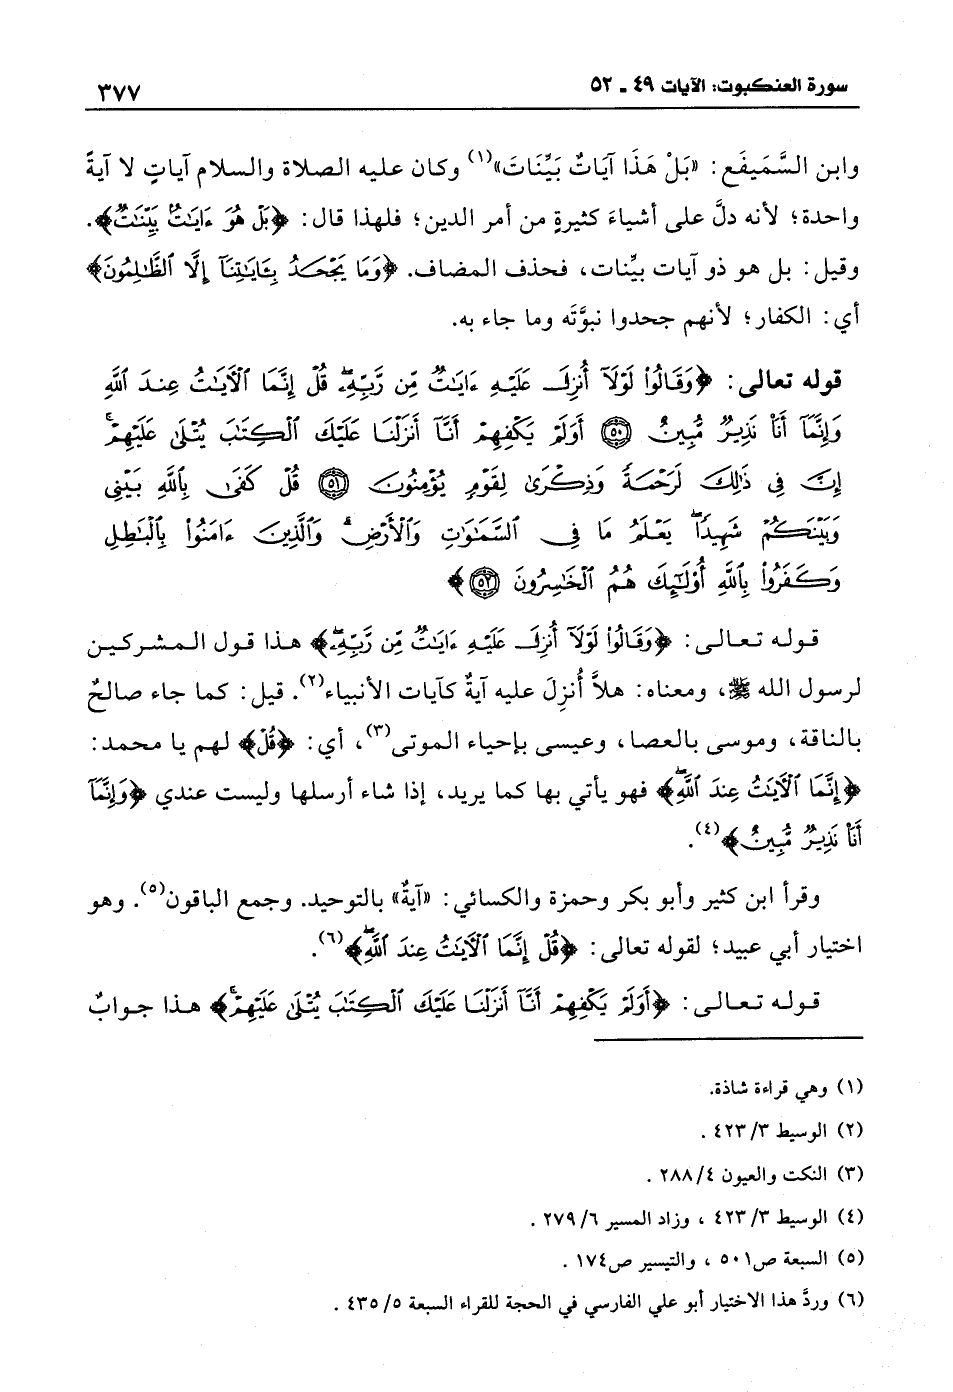 سورة العنكبوت: الآيات ٤٩ ـ ٥٢
٣٧٧
وابن السَّمَيفَع: «بَلْ هَذَا آيَاتٌ بَيِّنَاتَ»(١) وكان عليه الصلاة والسلام آياتٍ لا آيةً
واحدة؛ لأنه دلَّ على أشياءَ كثيرةٍ من أمر الدين؛ فلهذا قال: ﴿بَلْ هُوَ ءَايَٰتٌۢ بَيِّنَٰتٌ﴾.
وقيل: بل هو ذو آيات بيِّنات، فحذف المضاف. ﴿وَمَا يَجْحَدُ بِـَٔايَٰتِنَآ إِلَّا ٱلظَّٰلِمُونَ﴾
أي: الكفار؛ لأنهم جحدوا نبوَّتَه وما جاء به.
قوله تعالى: ﴿وَقَالُوا۟ لَوْلَآ أُنزِلَ عَلَيْهِ ءَايَٰتٌ مِّن رَّبِّهِۦۖ قُلْ إِنَّمَا ٱلْءَايَٰتُ عِندَ ٱللَّهِ
وَإِنَّمَآ أَنَا۠ نَذِيرٌ مُّبِينٌ ٥٠ أَوَلَمْ يَكْفِهِمْ أَنَّآ أَنزَلْنَا عَلَيْكَ ٱلْكِتَٰبَ يُتْلَىٰ عَلَيْهِمْۚ
إِنَّ فِى ذَٰلِكَ لَرَحْمَةً وَذِكْرَىٰ لِقَوْمٍ يُؤْمِنُونَ ٥١ قُلْ كَفَىٰ بِٱللَّهِ بَيْنِى
وَبَيْنَكُمْ شَهِيدًاۖ يَعْلَمُ مَا فِى ٱلسَّمَٰوَٰتِ وَٱلْأَرْضِۗ وَٱلَّذِينَ ءَامَنُوا۟ بِٱلْبَٰطِلِ
وَكَفَرُوا۟ بِٱللَّهِ أُو۟لَٰٓئِكَ هُمُ ٱلْخَٰسِرُونَ ٥٢﴾
قوله تعالى: ﴿وَقَالُوا۟ لَوْلَآ أُنزِلَ عَلَيْهِ ءَايَٰتٌ مِّن رَّبِّهِۦۖ﴾ هذا قول المشركين
لرسول الله ﷺ، ومعناه: هلاَّ أُنزِلَ عليه آيةٌ كآيات الأنبياء(٢). قيل: كما جاء صالحٌ
بالناقة، وموسى بالعصا، وعيسى بإحياء الموتى(٣)، أي: ﴿قُلْ﴾ لهم يا محمد:
﴿إِنَّمَا ٱلْءَايَٰتُ عِندَ ٱللَّهِۖ﴾ فهو يأتي بها كما يريد، إذا شاء أرسلها وليست عندي ﴿وَإِنَّمَآ
أَنَا۠ نَذِيرٌ مُّبِينٌ﴾(٤).
وقرأ ابن كثير وأبو بكر وحمزة والكسائي: «آيةٌ» بالتوحيد. وجمع الباقون(٥). وهو
اختيار أبي عبيد؛ لقوله تعالى: ﴿قُلْ إِنَّمَا ٱلْءَايَٰتُ عِندَ ٱللَّهِۖ﴾(٦).
قوله تعالى: ﴿أَوَلَمْ يَكْفِهِمْ أَنَّآ أَنزَلْنَا عَلَيْكَ ٱلْكِتَٰبَ يُتْلَىٰ عَلَيْهِمْۚ﴾ هذا جوابٌ
(١) وهي قراءة شاذة.
(٢) الوسيط ٣/ ٤٢٣ .
(٣) النكت والعيون ٤/ ٢٨٨ .
(٤) الوسيط ٣/ ٤٢٣ ، وزاد المسير ٦/ ٢٧٩ .
(٥) السبعة ص٥٠١ ، والتيسير ص١٧٤ .
(٦) وردَّ هذا الاختيار أبو علي الفارسي في الحجة للقراء السبعة ٥/ ٤٣٥ .